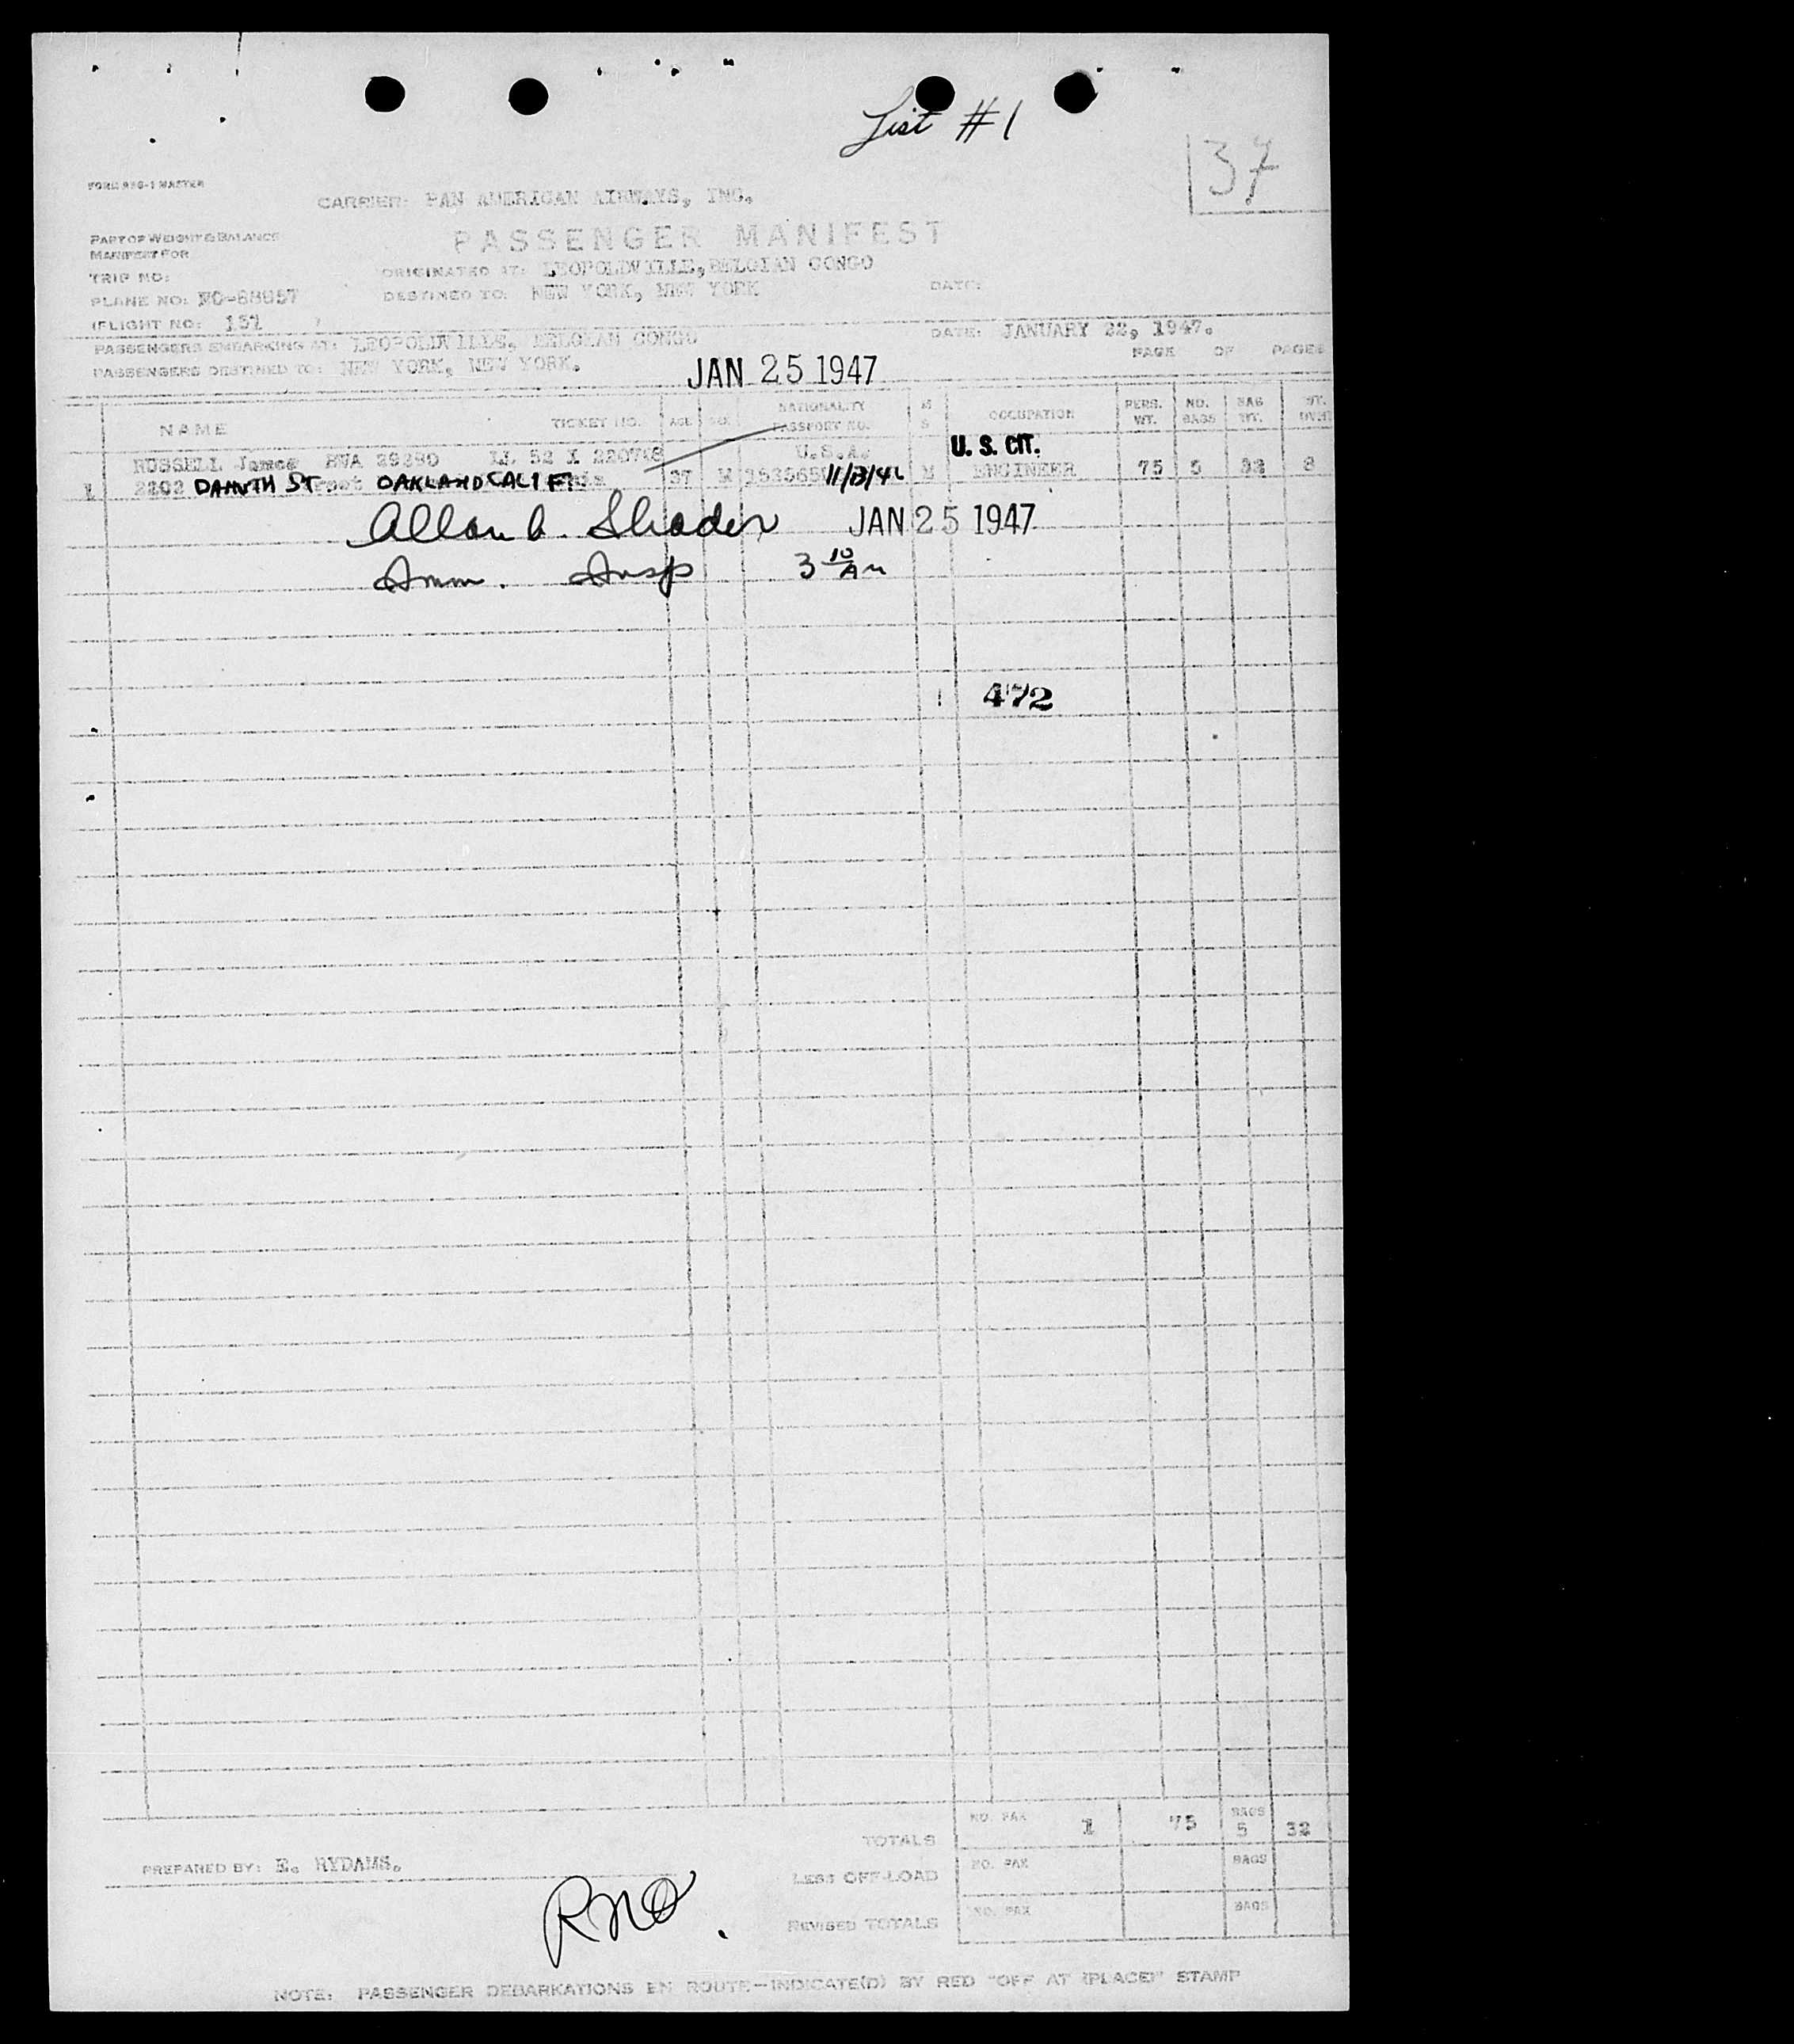 List #1
37
CARRIER: PAN AMERICAN AIRWAYS, INC.
PART OF WEIGHT & BALANCE
MANIFEST FOR
PASSENGER MANIFEST
TRIP NO:
ORIGINATED AT: LEOPOLDVILLE, BELGIAN CONGO
PLANE NO: NC-88857
DESTINED TO: NEW YORK, NEW YORK
DATE:
(FLIGHT NO: 151 )
PASSENGERS EMBARKING AT: LEOPOLDVILLE, BELGIAN CONGO
DATE: JANUARY 22, 1947.
PASSENGERS DESTINED TO: NEW YORK, NEW YORK.
PAGE OF PAGES
JAN 25 1947
NAME TICKET NO. AGE SEX NATIONALITY PASSPORT NO. M S OCCUPATION PERS. WT. NO. BAGS BAG WT. WT.
U. S. CIT.
RUSSELL James U.S.A.
1 2202 ST. OAKLAND CALIF. 37 M M ENGINEER 75 5 32 8
JAN 25 1947
Imm. Insp 3 10 AM
472
TOTALS NO. PAX 1 75 BAGS 5 32
PREPARED BY: E. RYDAMS.
LESS OFF-LOAD NO. PAX BAGS
REVISED TOTALS NO. PAX BAGS
NOTE: PASSENGER DEBARKATIONS EN ROUTE—INDICATE(D) BY RED "OFF AT (PLACE)" STAMP